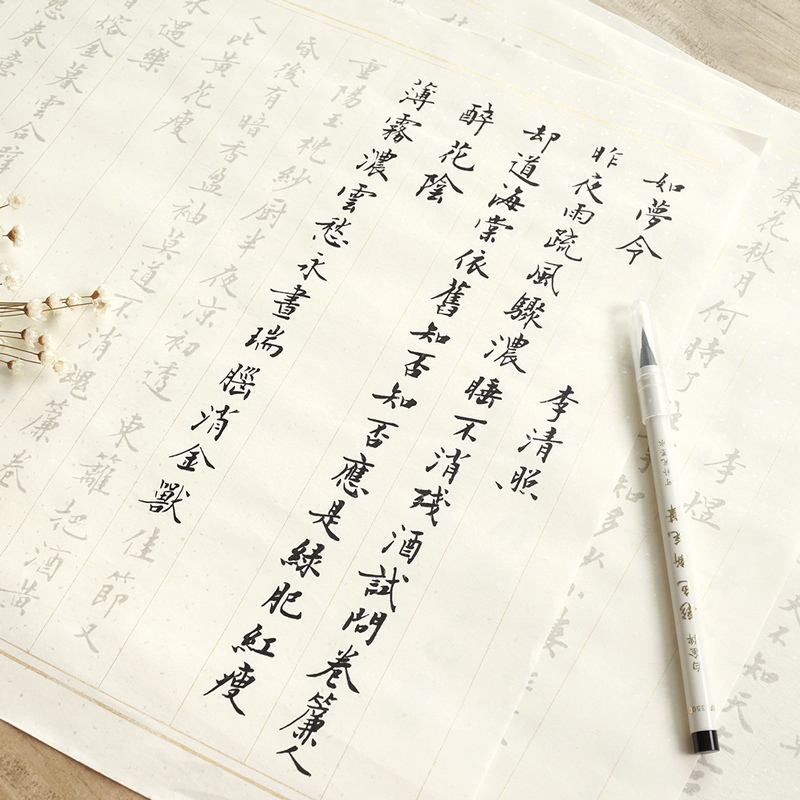 春花秋月何時了
李煜
知多少小樓
如夢令 李清照
昨夜雨疏風驟濃睡不消殘酒試問卷簾人
却道海棠依舊知否知否應是綠肥紅瘦
醉花陰
薄霧濃雲愁永晝瑞腦消金獸佳節又
重陽玉枕紗厨半夜凉初透東籬把酒黃
昏後有暗香盈袖莫道不消魂簾卷
人比黃花瘦
永遇樂
日熔金暮雲合璧
怨春意
不知天
彩色新毛筆